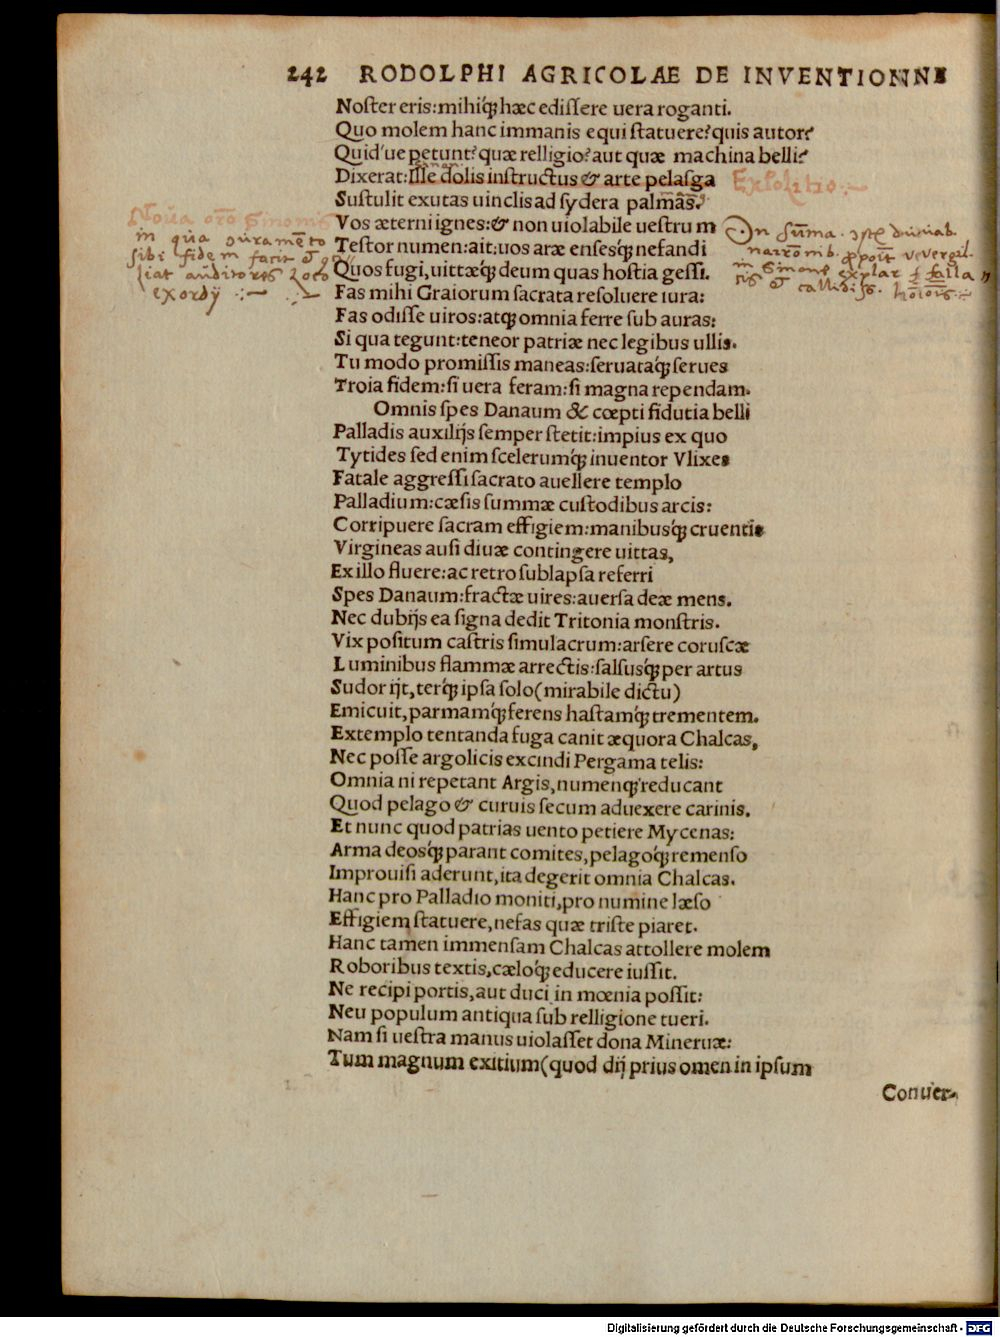 242 RODOLPHI AGRICOLAE DE INVENTIONNE
Noſter eris:mihiq́; hæc ediſſere uera roganti.
Quo molem hanc immanis equi ſtatuere? quis autor?
Quid'ue petunt? quæ relligio? aut quæ machina belli?
Dixerat: Ille dolis inſtructus & arte pelaſga
Expolitio
Suſtulit exutas uinclis ad ſydera palmas.
Noua oro Sinonis
in qua iuramēto
sibi fidem facit &
auditores loco
exordij
Vos æterni ignes: & non uiolabile ueſtrum
Teſtor numen: ait: uos aræ enſesq́; nefandi
Quos fugi, uittæq́; deum quas hoſtia geſſi.
In sūma
callidis hoīoīs
Fas mihi Graiorum ſacrata reſoluere iura:
Fas odiſſe uiros: atq; omnia ferre ſub auras:
Si qua tegunt: teneor patriæ nec legibus ullis.
Tu modo promiſſis maneas: ſeruataq́; ſerues
Troia fidem: ſi uera feram: ſi magna rependam.
Omnis ſpes Danaum & cœpti fidutia belli
Palladis auxilijs ſemper ſtetit: impius ex quo
Tytides ſed enim ſcelerumq́; inuentor Vlixes
Fatale aggreſſi ſacrato auellere templo
Palladium: cæſis ſummæ cuſtodibus arcis:
Corripuere ſacram effigiem: manibusq́; cruentis
Virgineas auſi diuæ contingere uittas,
Ex illo fluere: ac retro ſublapſa referri
Spes Danaum: fractæ uires: auerſa deæ mens.
Nec dubijs ea ſigna dedit Tritonia monſtris.
Vix poſitum caſtris ſimulacrum: arſere coruſcæ
Luminibus flammæ arrectis: ſalſusq́; per artus
Sudor ijt, terq́; ipſa ſolo (mirabile dictu)
Emicuit, parmamq́; ferens haſtamq́; trementem.
Extemplo tentanda fuga canit æquora Chalcas,
Nec poſſe argolicis excindi Pergama telis:
Omnia ni repetant Argis, numenq́; reducant
Quod pelago & curuis ſecum aduexere carinis.
Et nunc quod patrias uento petiere Mycenas:
Arma deosq́; parant comites, pelagoq́; remenſo
Improuiſi aderunt, ita degerit omnia Chalcas.
Hanc pro Palladio moniti, pro numine læſo
Effigiem ſtatuere, nefas quæ triſte piaret.
Hanc tamen immenſam Chalcas attollere molem
Roboribus textis, cæloq́; educere iuſſit.
Ne recipi portis, aut duci in mœnia poſſit:
Neu populum antiqua ſub relligione tueri.
Nam ſi ueſtra manus uiolaſſet dona Mineruæ:
Tum magnum exitium (quod dij prius omen in ipſum
Conuer-
Digitalisierung gefördert durch die Deutsche Forschungsgemeinschaft - DFG